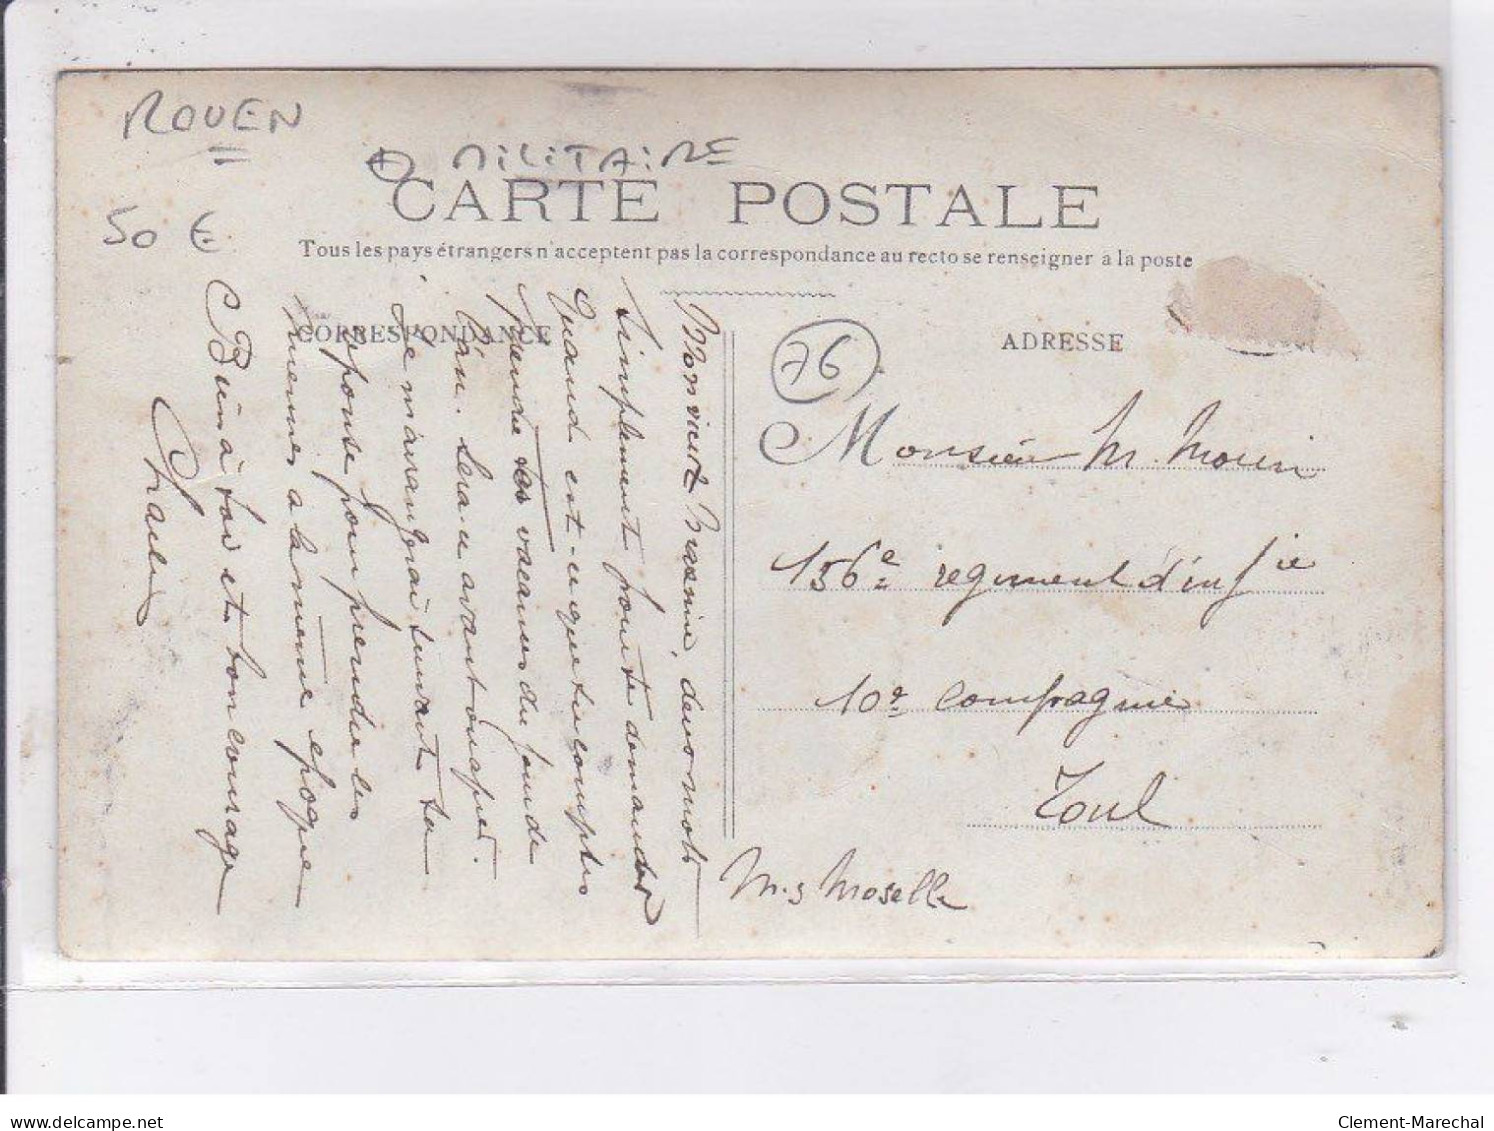 ROUEN
MILITAIRE
50 €
CARTE POSTALE
Tous les pays étrangers n'acceptent pas la correspondance au recto se renseigner à la poste
CORRESPONDANCE
ADRESSE
76
Mon vieux deux mots
simplement pour te demander
Quand est-ce que tu comptes
prendre tes vacances du jour de
l'an. Sera-ce avant ou après.
Je m'arrangerai suivant ta
réponse pour prendre les
miennes a la même époque
Bien à toi et bon courage
Charles
Monsieur M. Morin
156e regiment d'infie
10e compagnie
Toul
M. & Moselle
delcampe.net
Clement-Marechal